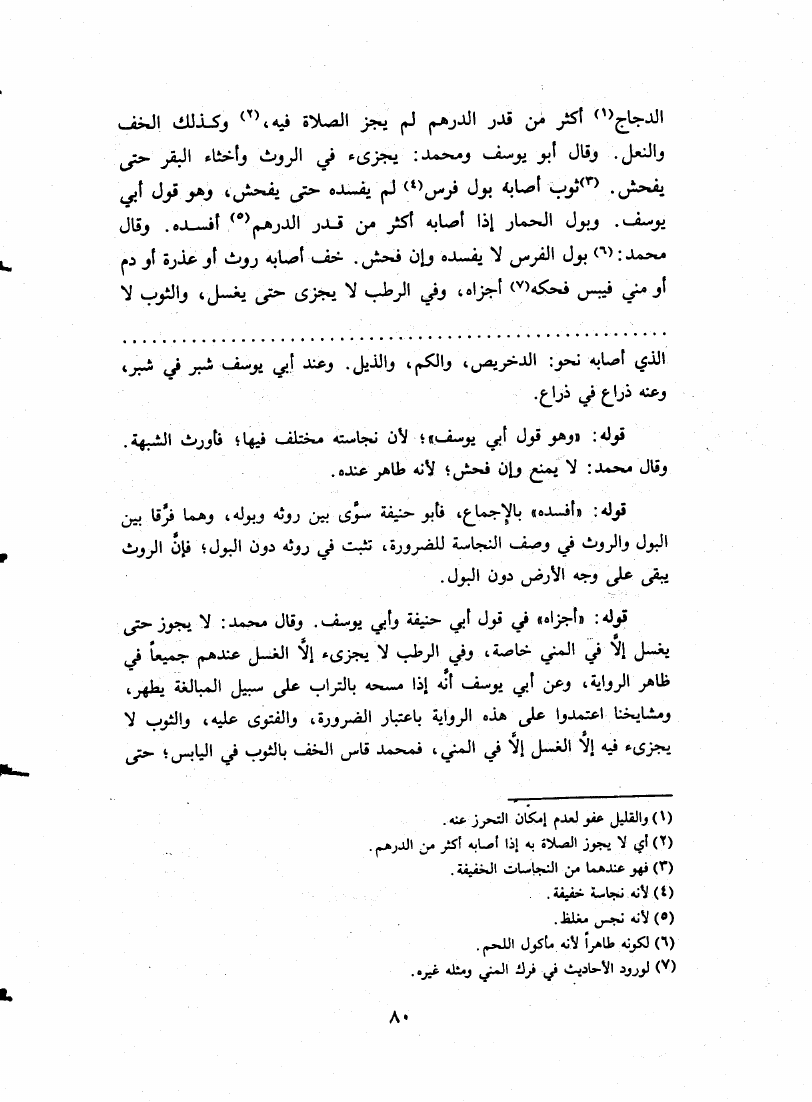 الدجاج(١) أكثر من قدر الدرهم لم يجز الصلاة فيه،(٢) وكذلك الخف
والنعل. وقال أبو يوسف ومحمد: يجزىء في الروث وأخثاء البقر حتى
يفحش. (٣)ثوب أصابه بول فرس(٤) لم يفسده حتى يفحش، وهو قول أبي
يوسف. وبول الحمار إذا أصابه أكثر من قدر الدرهم(٥) أفسده. وقال
محمد:(٦) بول الفرس لا يفسده وإن فحش. خف أصابه روث أو عذرة أو دم
أو مني فيبس فحكه(٧) أجزاه، وفي الرطب لا يجزى حتى يغسل، والثوب لا
الذي أصابه نحو: الدخريص، والكم، والذيل. وعند أبي يوسف شبر في شبر،
وعنه ذراع في ذراع.
قوله: «وهو قول أبي يوسف»؛ لأن نجاسته مختلف فيها؛ فأورث الشبهة.
وقال محمد: لا يمنع وإن فحش؛ لأنه طاهر عنده.
قوله: «أفسده» بالإجماع، فأبو حنيفة سوَّى بين روثه وبوله، وهما فرَّقا بين
البول والروث في وصف النجاسة للضرورة، تثبت في روثه دون البول؛ فإنَّ الروث
يبقى على وجه الأرض دون البول.
قوله: «أجزاه» في قول أبي حنيفة وأبي يوسف. وقال محمد: لا يجوز حتى
يغسل إلَّا في المني خاصة، وفي الرطب لا يجزىء إلَّا الغسل عندهم جميعاً في
ظاهر الرواية، وعن أبي يوسف أنَّه إذا مسحه بالتراب على سبيل المبالغة يطهر،
ومشايخنا اعتمدوا على هذه الرواية باعتبار الضرورة، والفتوى عليه، والثوب لا
يجزىء فيه إلَّا الغسل إلَّا في المني، فمحمد قاس الخف بالثوب في اليابس؛ حتى
(١) والقليل عفو لعدم إمكان التحرز عنه.
(٢) أي لا يجوز الصلاة به إذا أصابه أكثر من الدرهم.
(٣) فهو عندهما من النجاسات الخفيفة.
(٤) لأنه نجاسة خفيفة.
(٥) لأنه نجس مغلظ.
(٦) لكونه طاهراً لأنه مأكول اللحم.
(٧) لورود الأحاديث في فرك المني ومثله غيره.
٨٠